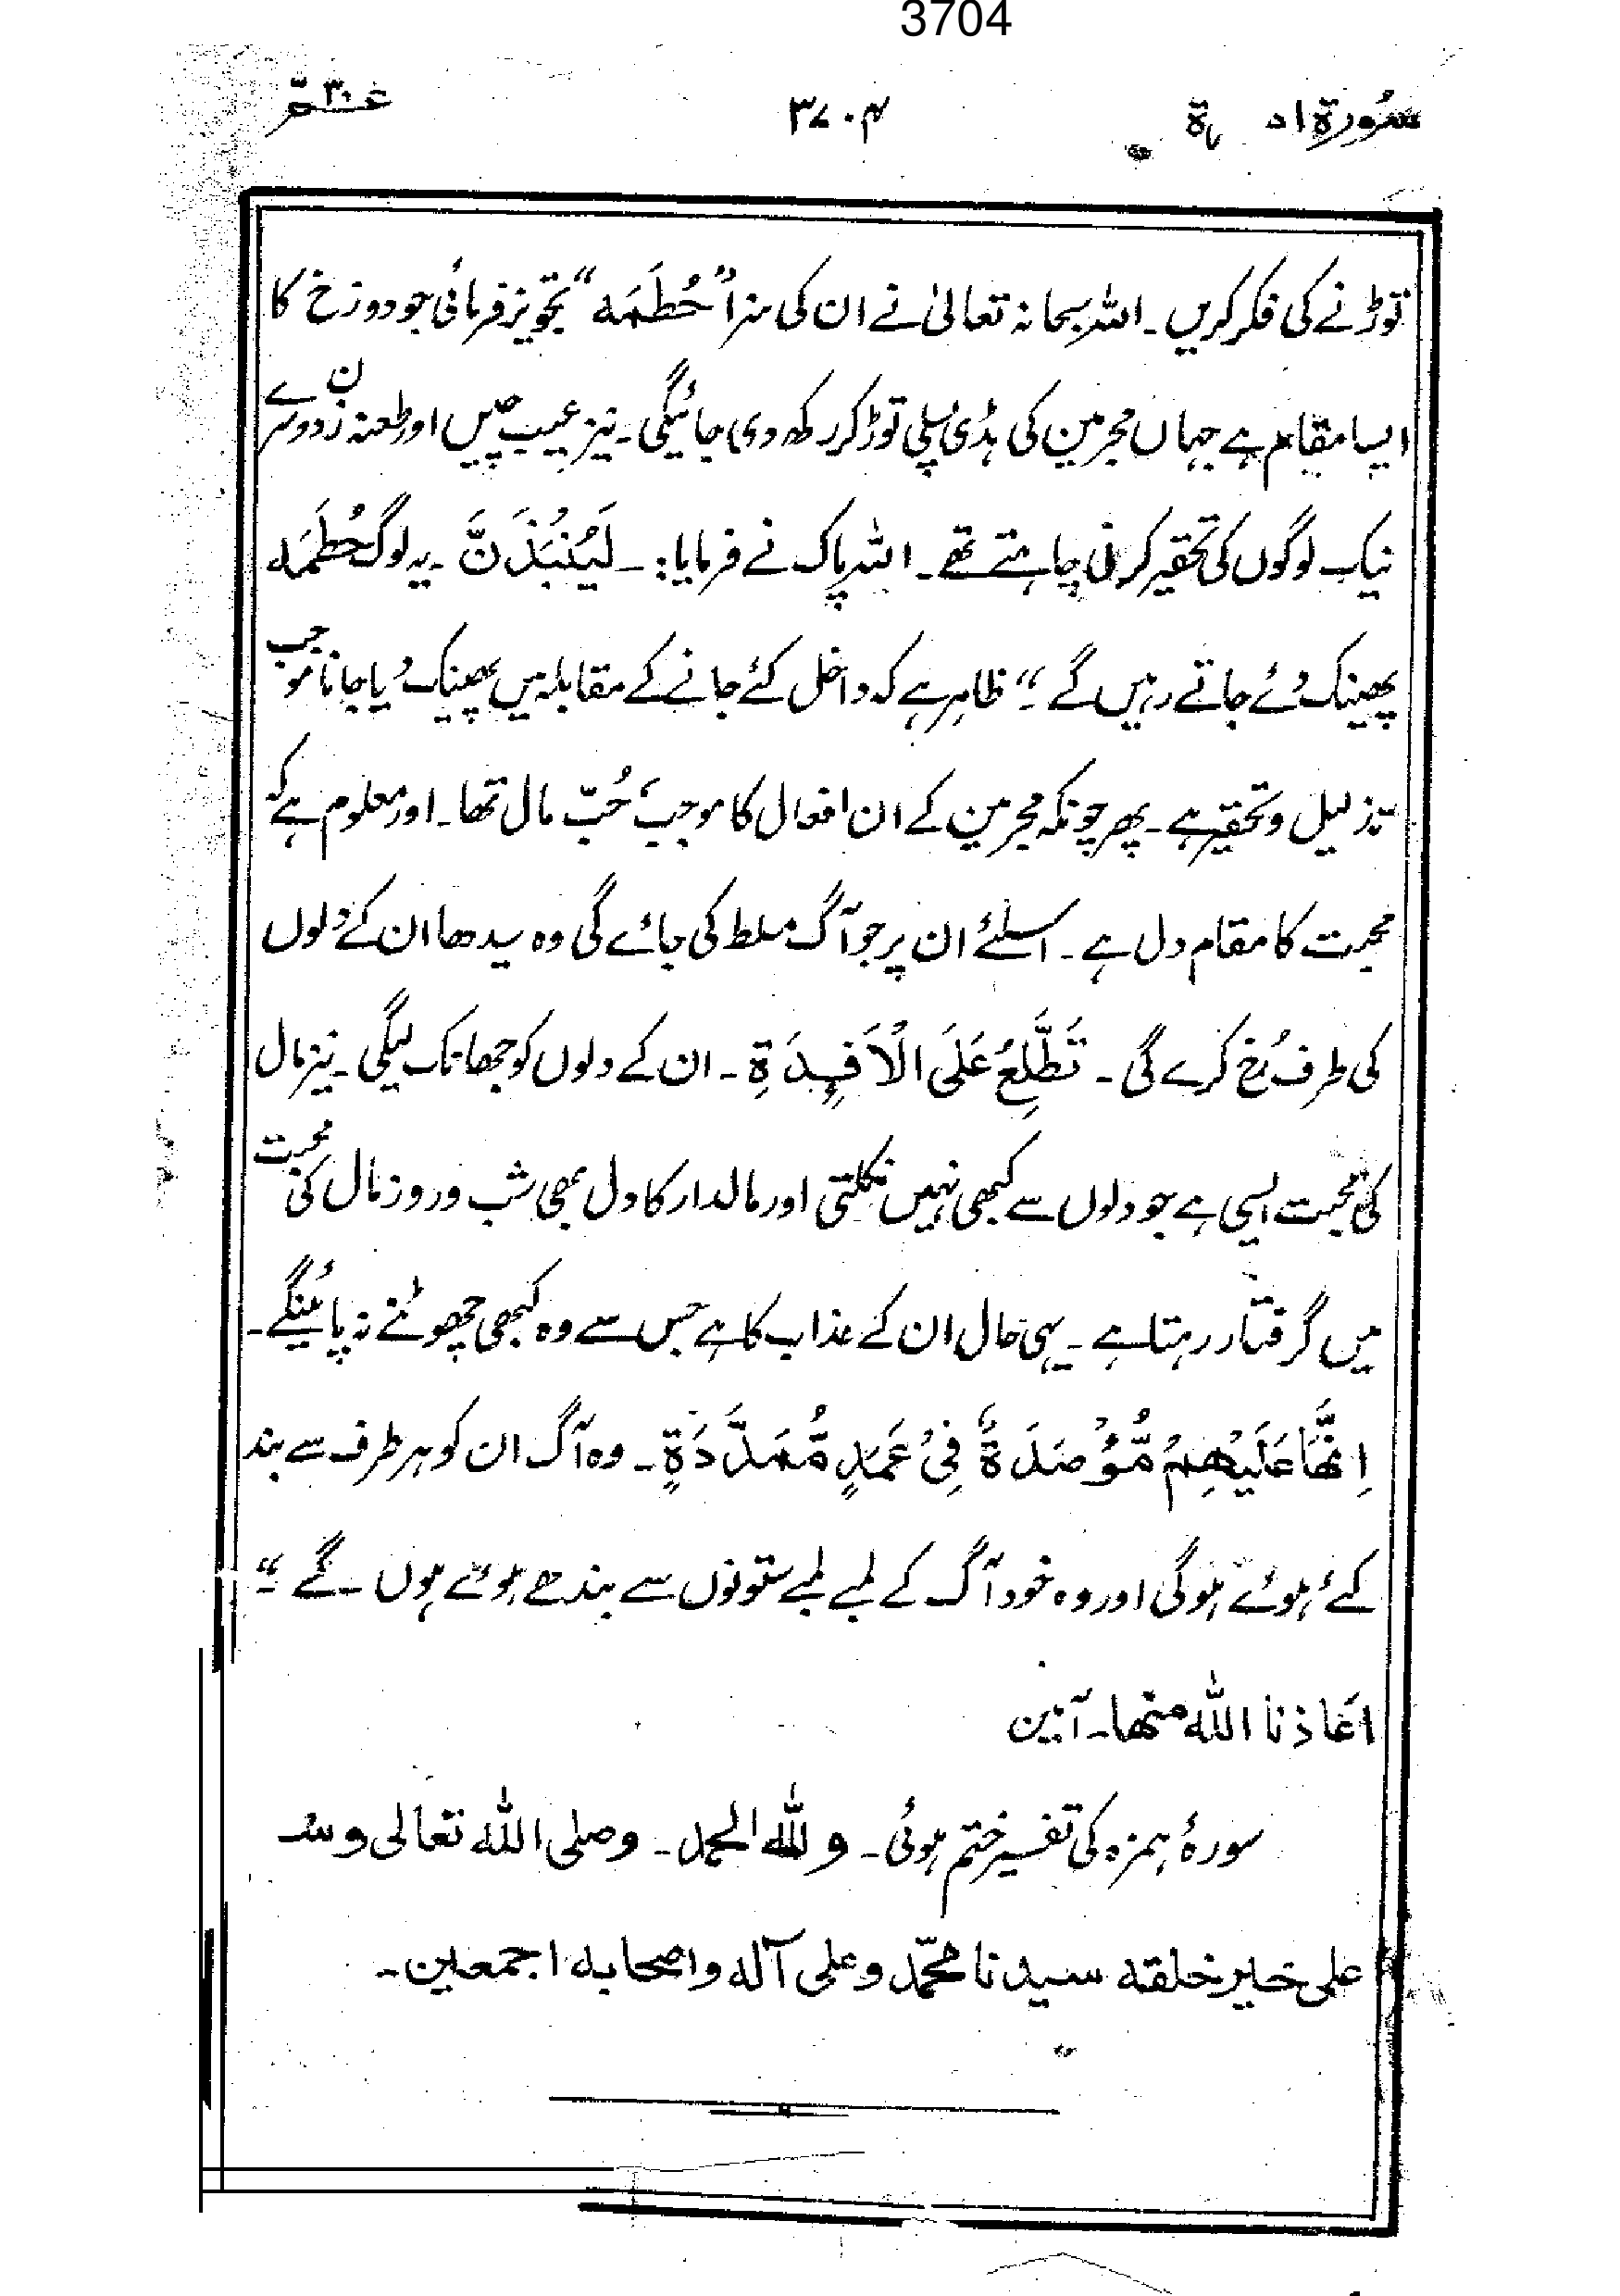 3704
سُورۃ
۳۷۰۴
عــم ۳۰
توڑنے کی فکر کریں۔ اللہ سبحانہ تعالیٰ نے ان کی سزا "حُطَمَہ" تجویز فرمائی جو دوزخ کا
ایسا مقام ہے جہاں مجرمین کی ہڈی پسلی توڑ کر رکھ دی جائیگی۔ نیز عیب چیں اور طعنہ زن دوسرے
نیک لوگوں کی تحقیر کرنی چاہتے تھے۔ اللہ پاک نے فرمایا:۔ لَيُنْبَذَنَّ ۔ یہ لوگ حُطَمَہ
پھینک دئے جاتے رہیں گے۔" ظاہر ہے کہ داخل کئے جانے کے مقابلہ میں پھینک دیا جانا موجب
تذلیل وتحقیر ہے۔ پھر چونکہ مجرمین کے ان افعال کا موجب حُبّ مال تھا۔ اور معلوم ہے کہ
محبت کا مقام دل ہے۔ اسلئے ان پر جو آگ مسلط کی جائے گی وہ سیدھا ان کے دلوں
کی طرف رُخ کرے گی۔ تَطَّلِعُ عَلَى الْاَفْـِٕدَةِ ۔ ان کے دلوں کو جھانک لیگی۔ نیز مال
کی محبت ایسی ہے جو دلوں سے کبھی نہیں نکلتی اور مالدار کا دل بھی شب و روز مال کی محبت
میں گرفتار رہتا ہے۔ یہی حال ان کے عذاب کا ہے جس سے وہ کبھی چھوٹنے نہ پائینگے۔
اِنَّهَا عَلَيْهِمْ مُّؤْصَدَةٌ فِىْ عَمَدٍ مُّمَدَّدَةٍ ۔ وہ آگ ان کو ہر طرف سے بند
کئے ہوئے ہوگی اور وہ خود آگ کے لمبے لمبے ستونوں سے بندھے ہوئے ہوں گے۔"
اعاذنا اللہ منھا۔ آمین
سورۂ ہمزہ کی تفسیر ختم ہوئی۔ وللہ الحمد۔ وصلی اللہ تعالی وسلم
علی خیر خلقہ سیدنا محمّد وعلی آلہ واصحابہ اجمعین۔